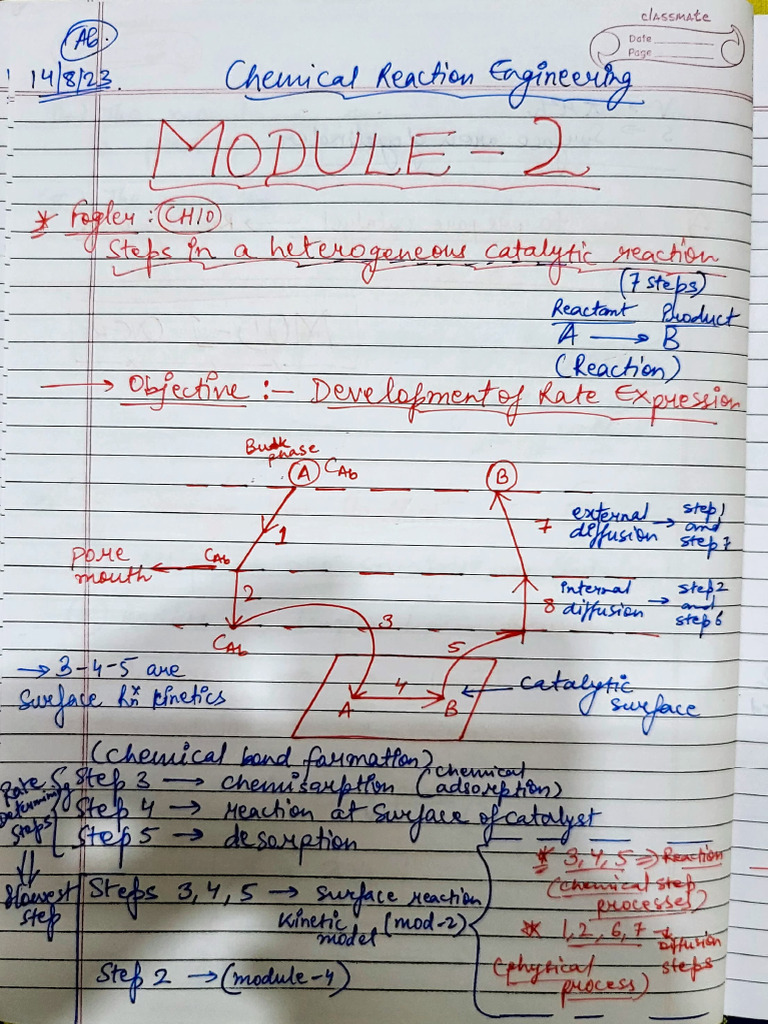 classmate
Date
Page
Ab
14/8/23.
Chemical Reaction Engineering
MODULE - 2
* Fogler : CH10
Steps in a heterogeneous catalytic reaction
(7 steps)
Reactant Product
A → B
(Reaction)
→ Objective :- Development of Rate Expression
Bulk phase
A CAb
B
1
7 external diffusion → step 1 and step 7
pore mouth
CAb
2
8 internal diffusion → step 2 and step 6
3
CAb
5
→ 3-4-5 are
surface rxn kinetics
4
A B
catalytic surface
(chemical bond formation)
Step 3 → chemisorption (chemical adsorption)
Step 4 → reaction at surface of catalyst
Step 5 → desorption
Rate Determining Steps
⇓
Slowest step
Steps 3, 4, 5 → surface reaction
kinetic model (mod-2)
Step 2 → (module-4)
* 3, 4, 5 ⇒ Reaction
(chemical step
processes)
* 1, 2, 6, 7 → diffusion steps
(physical
process)